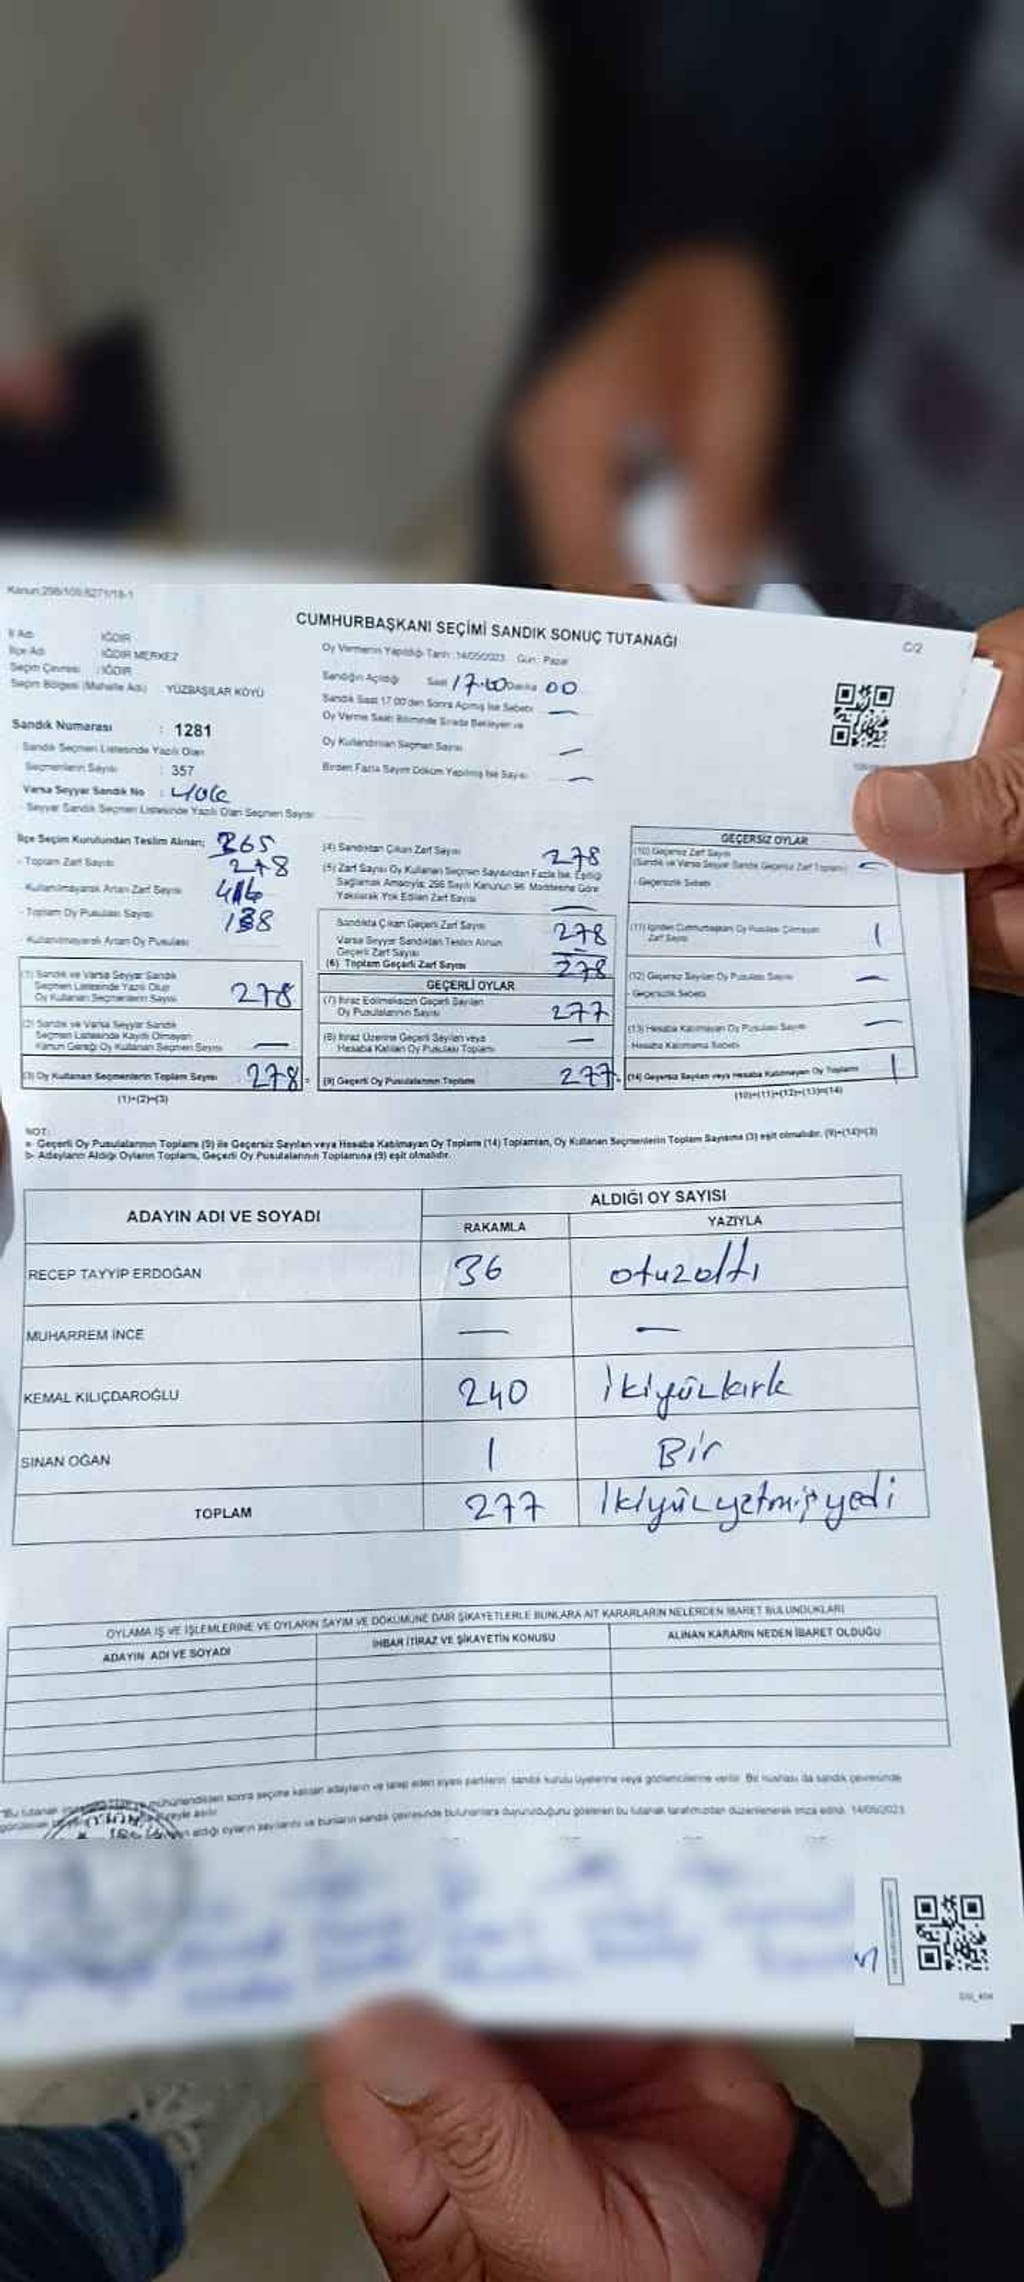 Kanun:298/105,6271/18-1
CUMHURBAŞKANI SEÇİMİ SANDIK SONUÇ TUTANAĞI
C/2
İl Adı : IĞDIR
İlçe Adı : IĞDIR MERKEZ
Seçim Çevresi : IĞDIR
Seçim Bölgesi (Mahalle Adı) YÜZBAŞILAR KÖYÜ
Oy Vermenin Yapıldığı Tarih :14/05/2023 Gün : Pazar
Sandığın Açıldığı Saat 17.00 Dakika 00
Sandık Saat 17.00'den Sonra Açılmış İse Sebebi —
Oy Verme Saati Bitiminde Sırada Bekleyen ve
Oy Kullandırılan Seçmen Sayısı —
Birden Fazla Sayım Döküm Yapılmış İse Sayısı —
Sandık Numarası : 1281
Sandık Seçmen Listesinde Yazılı Olan
Seçmenlerin Sayısı : 357
Varsa Seyyar Sandık No :
Seyyar Sandık Seçmen Listesinde Yazılı Olan Seçmen Sayısı
İlçe Seçim Kurulundan Teslim Alınan; 365
- Toplam Zarf Sayısı 278
- Kullanılmayarak Artan Zarf Sayısı
- Toplam Oy Pusulası Sayısı
- Kullanılmayarak Artan Oy Pusulası
(1) Sandık ve Varsa Seyyar Sandık
Seçmen Listesinde Yazılı Olup
Oy Kullanan Seçmenlerin Sayısı 278
(2) Sandık ve Varsa Seyyar Sandık
Seçmen Listesinde Kayıtlı Olmayan
Kanun Gereği Oy Kullanan Seçmen Sayısı —
(3) Oy Kullanan Seçmenlerin Toplam Sayısı 278
(1)+(2)=(3)
(4) Sandıktan Çıkan Zarf Sayısı 278
(5) Zarf Sayısı Oy Kullanan Seçmen Sayısından Fazla İse, Eşitliği
Sağlamak Amacıyla; 298 Sayılı Kanunun 98. Maddesine Göre
Yakılarak Yok Edilen Zarf Sayısı —
Sandıkta Çıkan Geçerli Zarf Sayısı 278
Varsa Seyyar Sandıktan Teslim Alınan
Geçerli Zarf Sayısı —
(6) Toplam Geçerli Zarf Sayısı 278
GEÇERLİ OYLAR
(7) İtiraz Edilmeksizin Geçerli Sayılan
Oy Pusulalarının Sayısı 277
(8) İtiraz Üzerine Geçerli Sayılan veya
Hesaba Katılan Oy Pusulası Toplamı —
(9) Geçerli Oy Pusulalarının Toplamı 277
GEÇERSİZ OYLAR
(10) Geçersiz Zarf Sayısı
(Sandık ve Varsa Seyyar Sandık Geçersiz Zarf Toplamı) —
- Geçersizlik Sebebi
(11) İçinden Cumhurbaşkanı Oy Pusulası Çıkmayan
Zarf Sayısı 1
(12) Geçersiz Sayılan Oy Pusulası Sayısı —
- Geçersizlik Sebebi
(13) Hesaba Katılmayan Oy Pusulası Sayısı —
Hesaba Katılmama Sebebi
(14) Geçersiz Sayılan veya Hesaba Katılmayan Oy Toplamı 1
(10)+(11)+(12)+(13)=(14)
NOT:
a- Geçerli Oy Pusulalarının Toplamı (9) ile Geçersiz Sayılan veya Hesaba Katılmayan Oy Toplamı (14) Toplamları, Oy Kullanan Seçmenlerin Toplam Sayısına (3) eşit olmalıdır. (9)+(14)=(3)
b- Adayların Aldığı Oyların Toplamı, Geçerli Oy Pusulalarının Toplamına (9) eşit olmalıdır.
ADAYIN ADI VE SOYADI
ALDIĞI OY SAYISI
RAKAMLA YAZIYLA
RECEP TAYYİP ERDOĞAN 36 otuzaltı
MUHARREM İNCE — —
KEMAL KILIÇDAROĞLU 240 ikiyüzkırk
SİNAN OĞAN 1 Bir
TOPLAM 277 İkiyüzyetmişyedi
OYLAMA İŞ VE İŞLEMLERİNE VE OYLARIN SAYIM VE DÖKÜMÜNE DAİR ŞİKAYETLERLE BUNLARA AİT KARARLARIN NELERDEN İBARET BULUNDUKLARI
ADAYIN ADI VE SOYADI
İHBAR İTİRAZ VE ŞİKAYETİN KONUSU
ALINAN KARARIN NEDEN İBARET OLDUĞU
"Bu tutanak mühürlendikten sonra seçime katılan adayların ve talep eden siyasi partilerin sandık kurulu üyelerine veya gözlemcilerine verilir. Bir nüshası da sandık çevresinde
aldığı oyların sayılarını ve bunların sandık çevresinde bulunanlara duyurulduğunu gösteren bu tutanak tarafımızdan düzenlenerek imza edildi. 14/05/2023